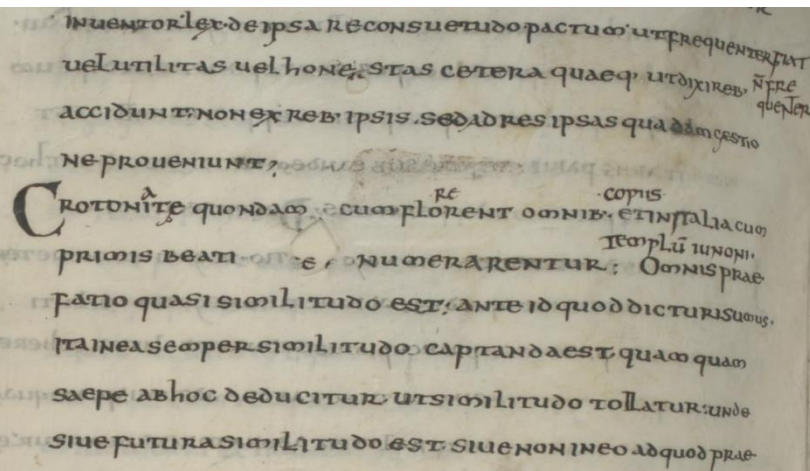 INUENTOR· LEX· DE IPSA RE CONSUETUDO· PACTUM· UT FREQUENTER FIAT
UEL UTILITAS UEL HONESTAS CETERA QUAEQ· UT DIXI REB· N̄ FRE
QUENTER
ACCIDUNT· NON EX REB· IPSIS· SED AD RES IPSAS QUADAM QESTIO
NE PROUENIUNT?
CROTONIATE QUONDAM CUM FLORERENT OMNIB· COPIIS· ET IN ITALIA CUM
PRIMIS BEATI NUMERARENTUR: TEMPLŪ IUNONI· OMNIS PRAE
FATIO QUASI SIMILITUDO EST; ANTE ID QUOD DICTURI SUMUS·
ITA IN EA SEMPER SIMILITUDO CAPTANDA EST· QUAMQUAM
SAEPE AB HOC DEDUCITUR· UT SIMILITUDO TOLLATUR: UNDE
SIUE FUTURA SIMILITUDO EST· SIUE NON IN EO AD QUOD PRAE